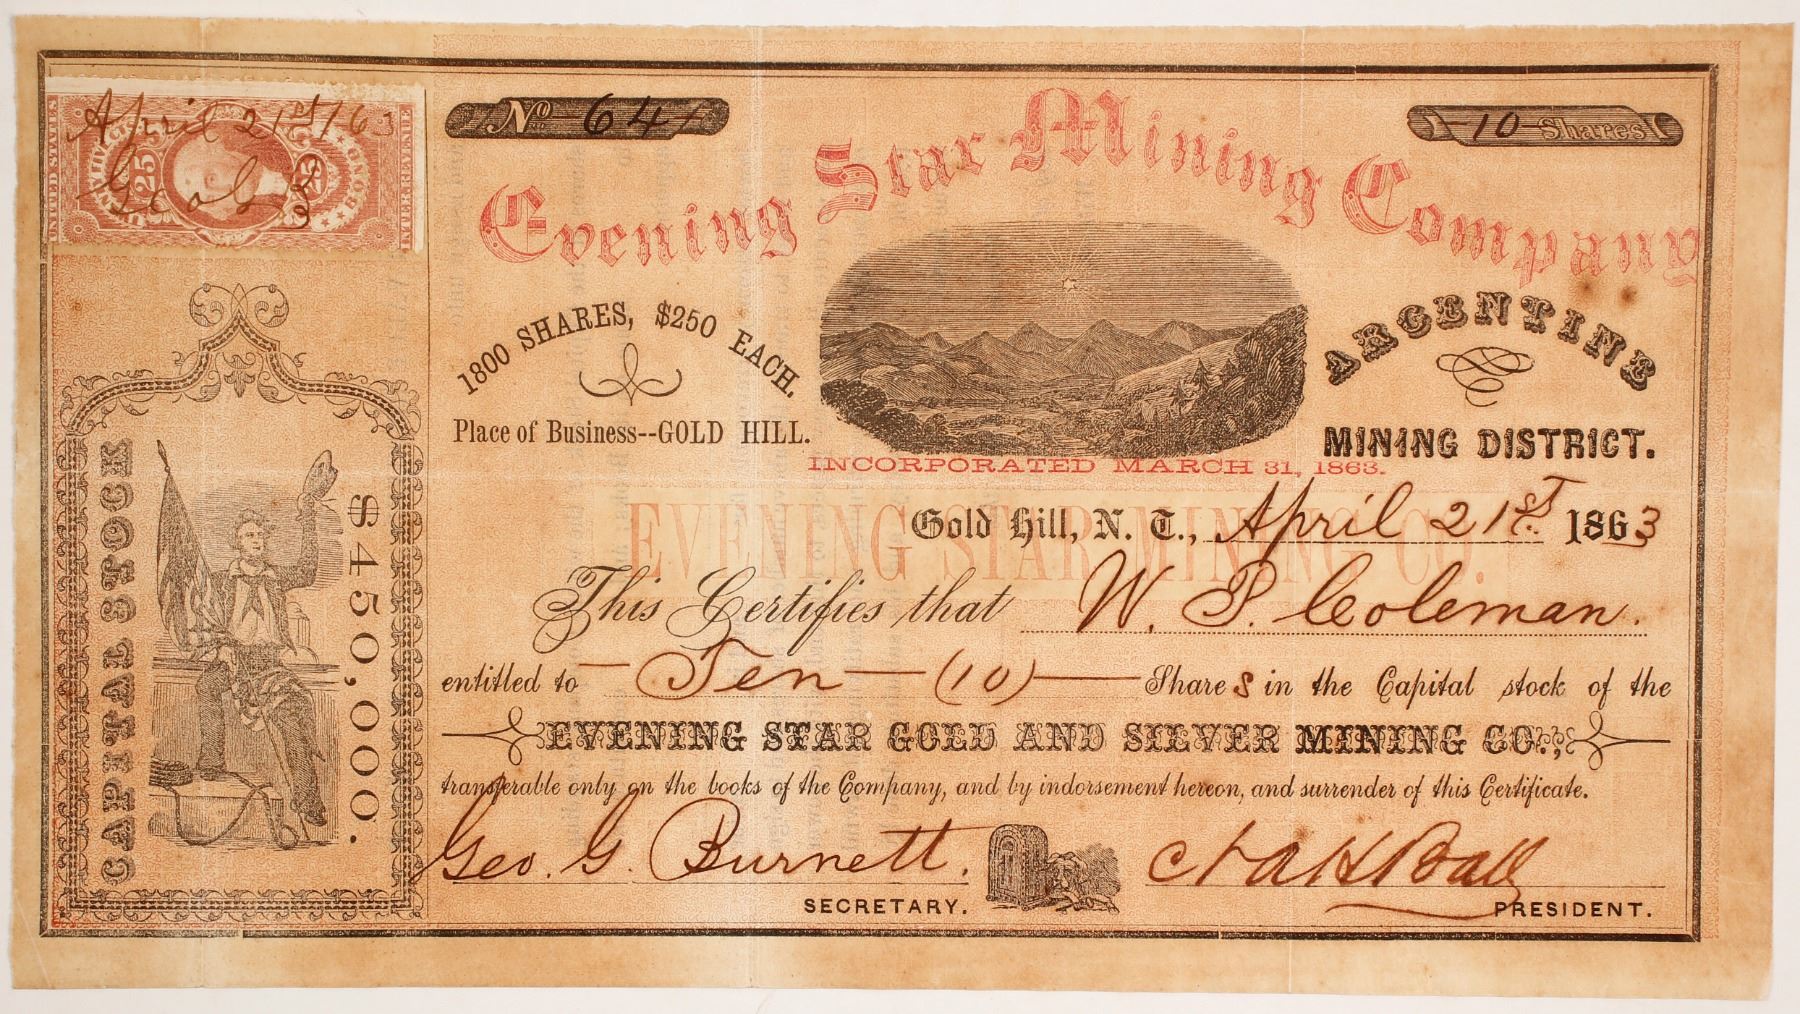 April 21st/63
Geo G B
UNITED STATES
INTER. REVENUE
25
25
BOND
No 64
10 Shares
Evening Star Mining Company
1800 SHARES, $250 EACH.
Place of Business--GOLD HILL.
ARGENTINE
MINING DISTRICT.
INCORPORATED MARCH 31, 1863.
EVENING STAR MINING CO.
Gold Hill, N. T., April 21st. 1863
This Certifies that W. P. Coleman.
entitled to Ten (10) Shares in the Capital stock of the
EVENING STAR GOLD AND SILVER MINING CO.,
transferable only on the books of the Company, and by indorsement hereon, and surrender of this Certificate.
Geo. G. Burnett.
SECRETARY.
Ball
PRESIDENT.
CAPITAL STOCK
$450,000.